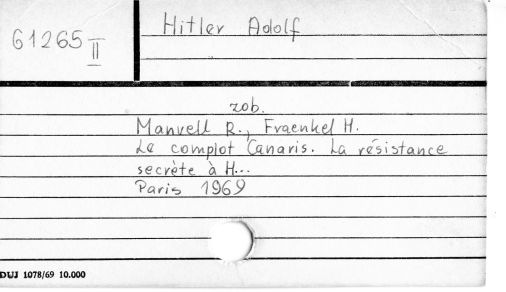 61265 II
Hitler Adolf
zob.
Manvell R., Fraenkel H.
Le complot Canaris. La résistance
secrète à H...
Paris 1969
DUJ 1078/69 10.000